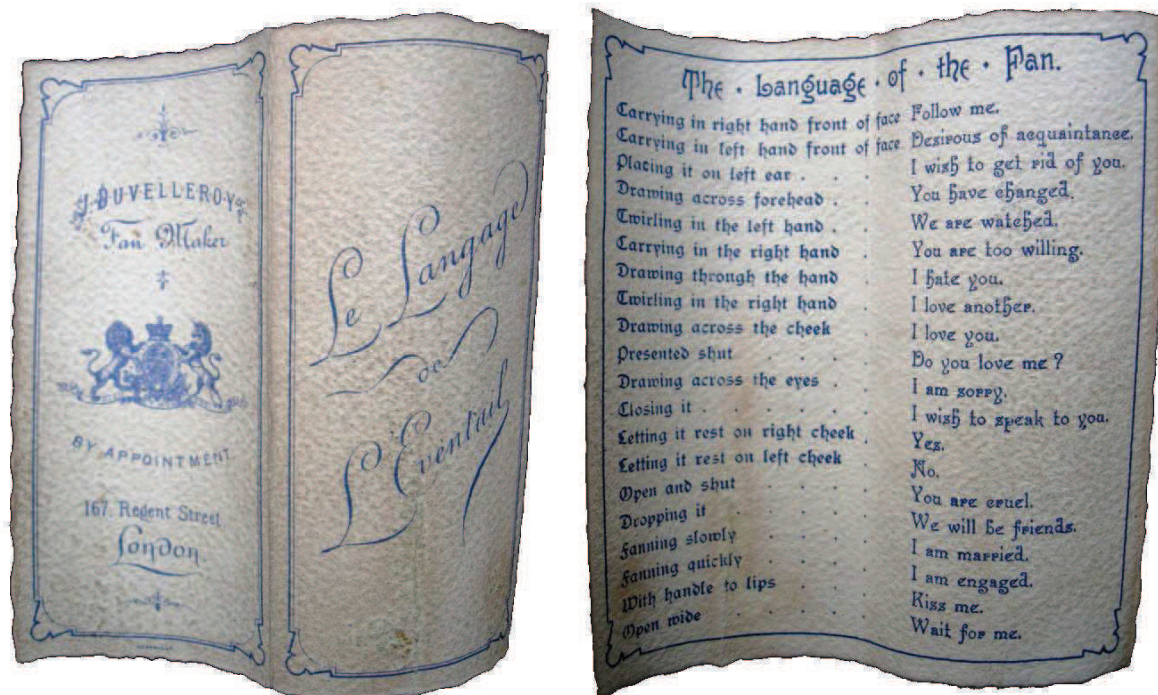 J. DUVELLEROY
Fan Maker
BY APPOINTMENT
167. Regent Street
London
Le Langage
de
L'Éventail
The · Language · of · the · Fan.
Carrying in right hand front of face Follow me.
Carrying in left hand front of face Desirous of acquaintance.
Placing it on left ear . . I wish to get rid of you.
Drawing across forehead . . You have changed.
Twirling in the left hand . . We are watched.
Carrying in the right hand . You are too willing.
Drawing through the hand . I hate you.
Twirling in the right hand . I love another.
Drawing across the cheek . I love you.
Presented shut . . . . Do you love me ?
Drawing across the eyes . . I am sorry.
Closing it . . . . . . I wish to speak to you.
Letting it rest on right cheek . Yes.
Letting it rest on left cheek . No.
Open and shut . . . . You are cruel.
Dropping it . . . . . We will be friends.
Fanning slowly . . . . I am married.
Fanning quickly . . . . I am engaged.
With handle to lips . . . Kiss me.
Open wide . . . . . Wait for me.